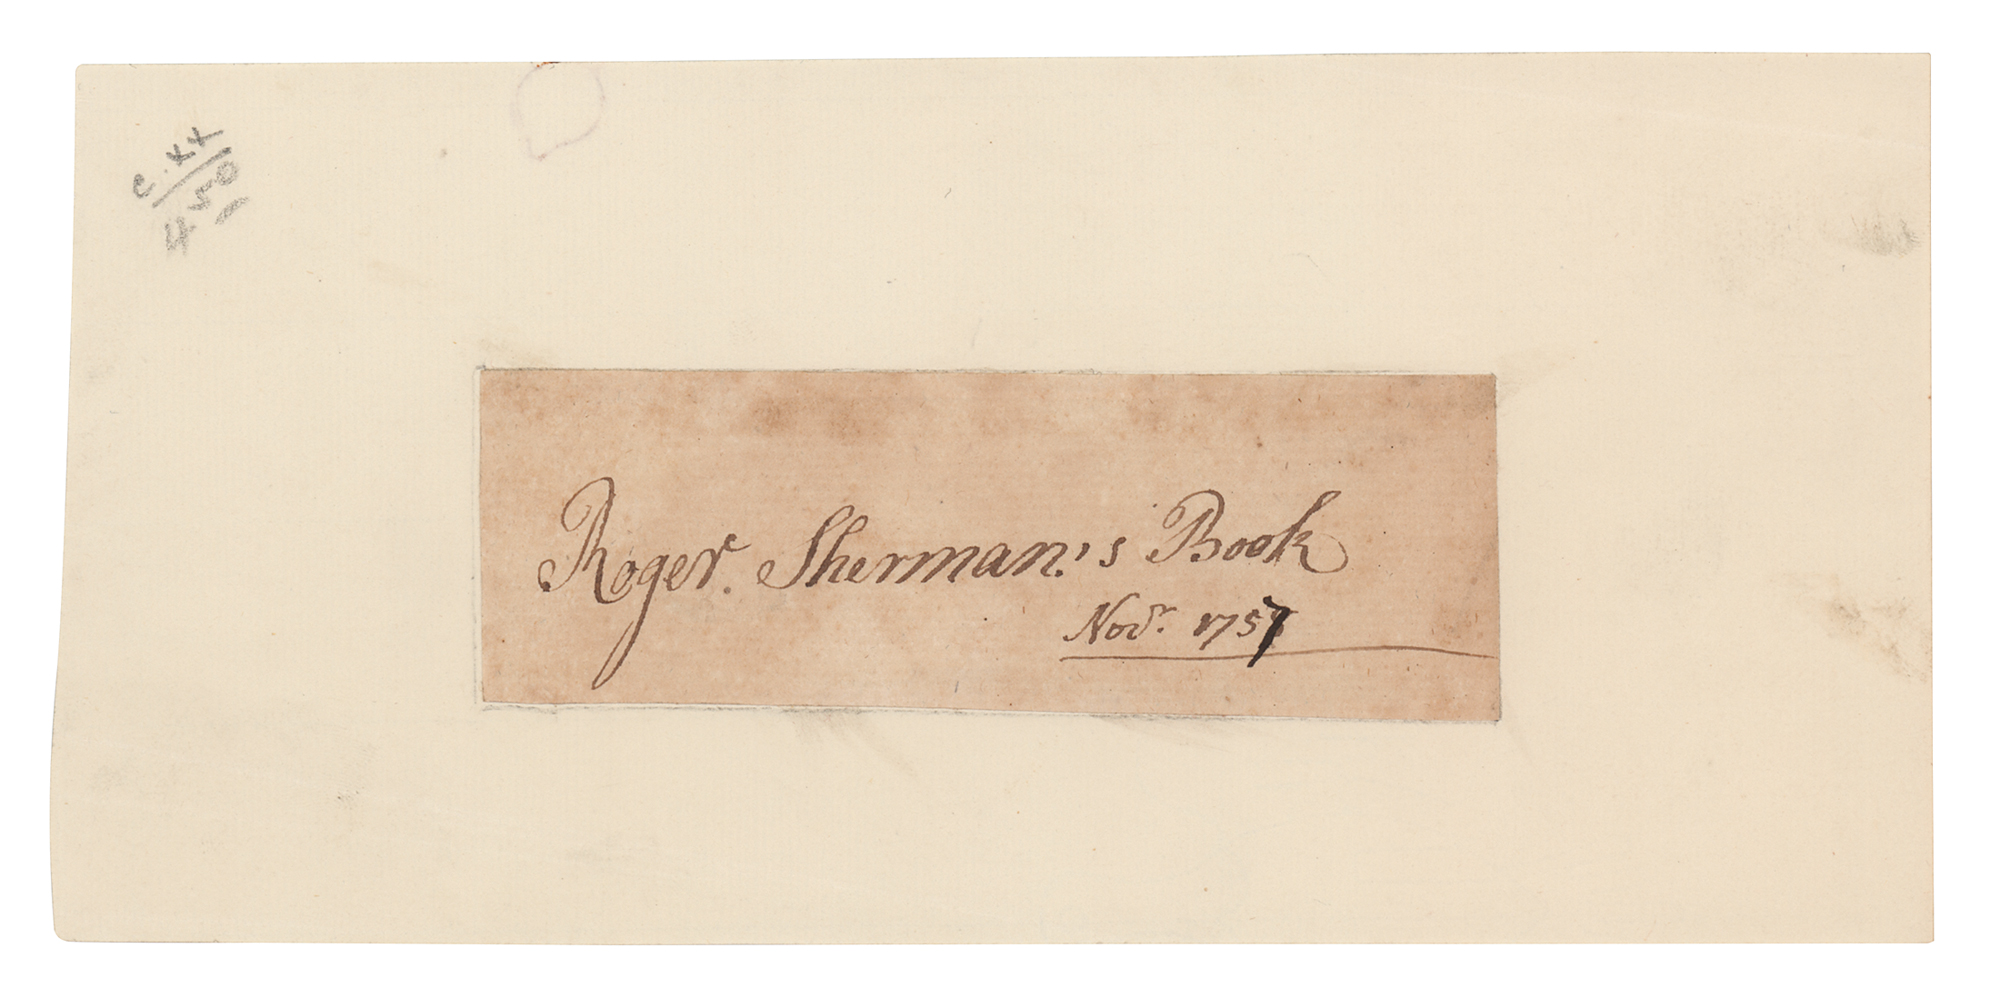 c.xx
450
Roger. Sherman.'s Book
Novr. 1757